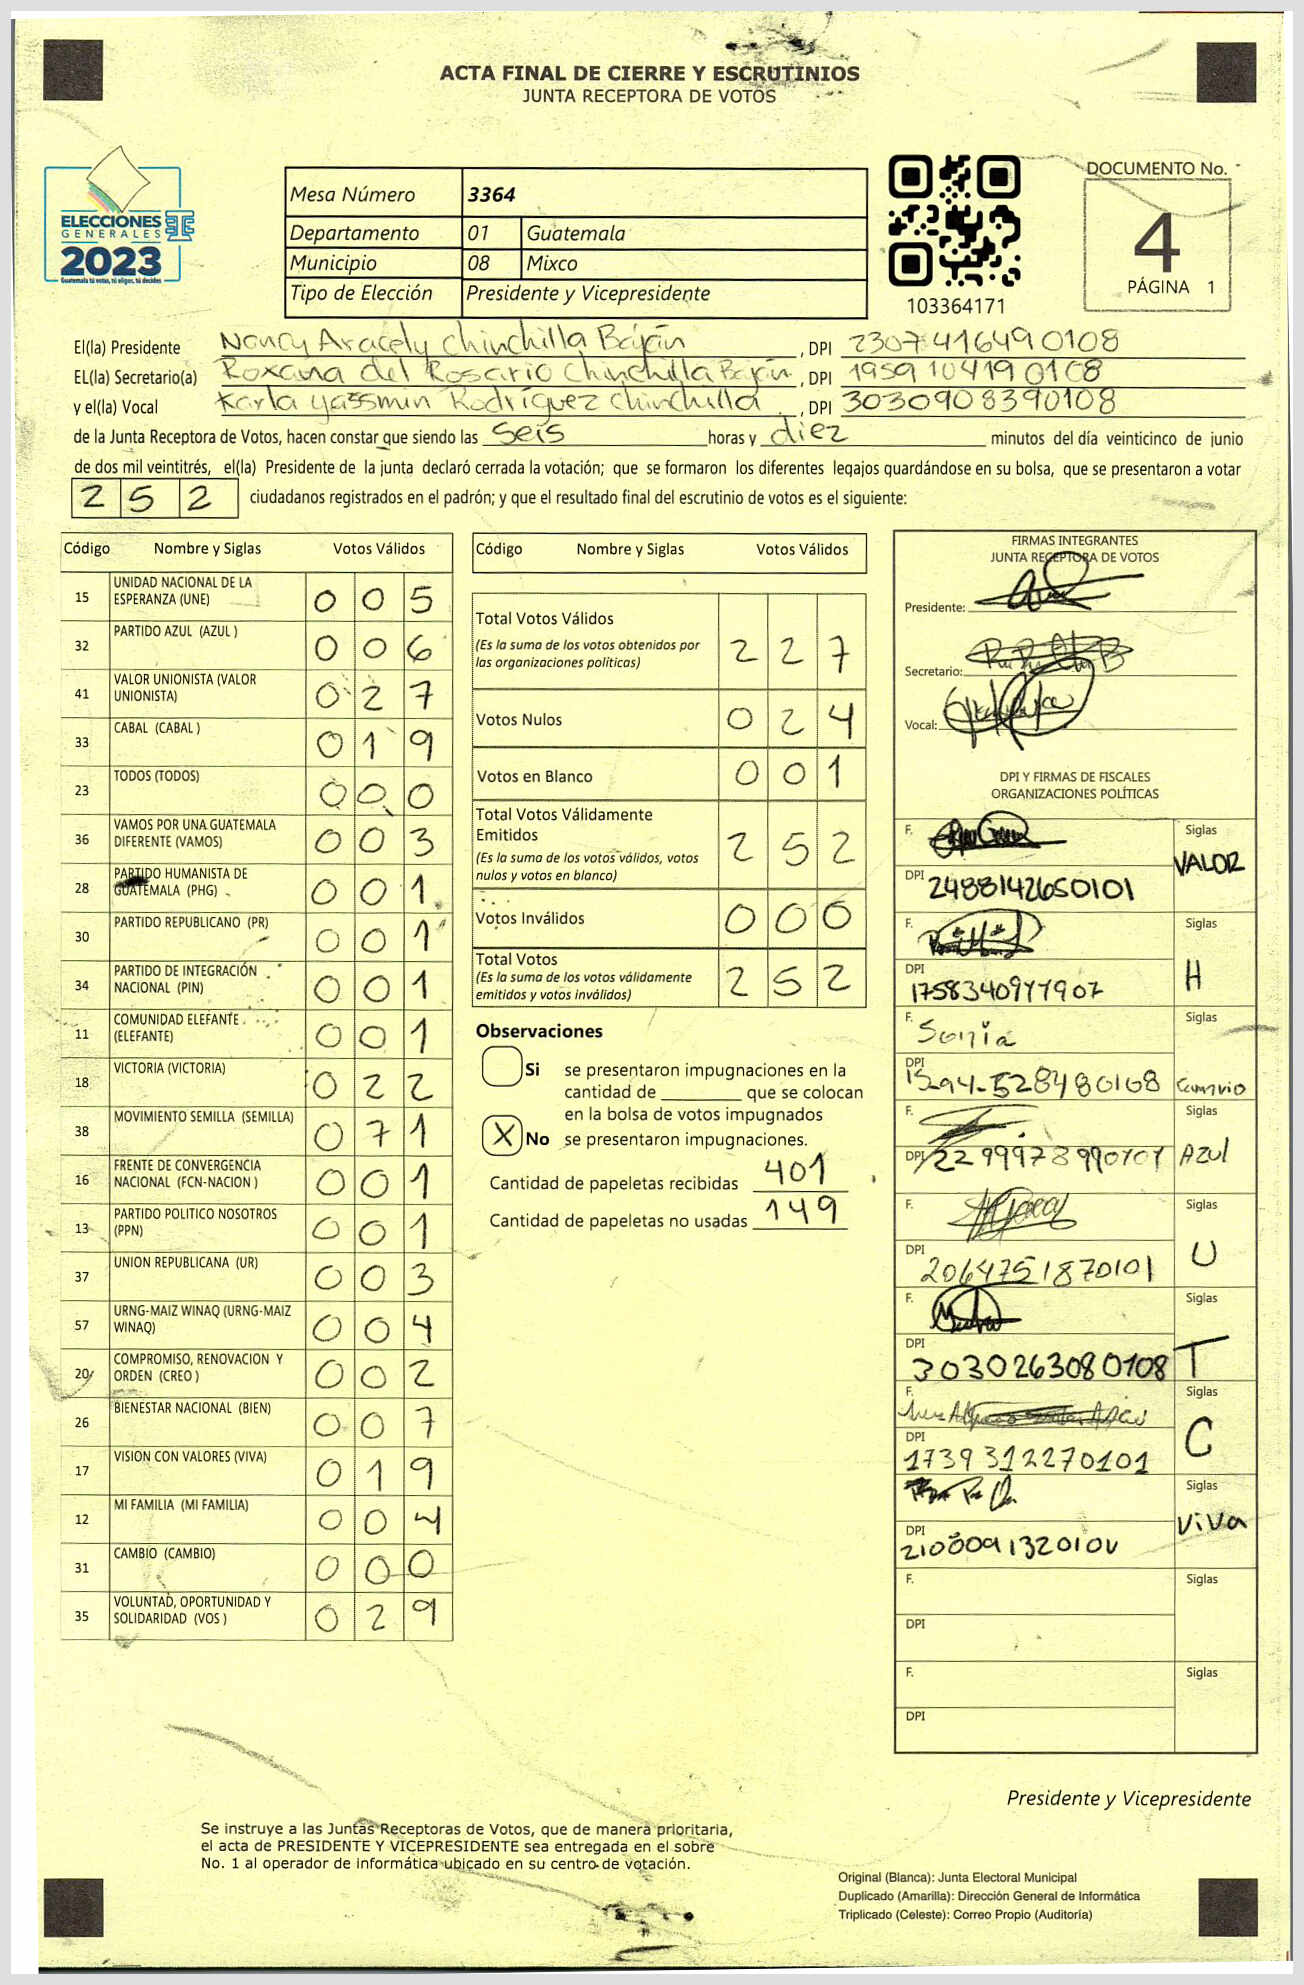 ACTA FINAL DE CIERRE Y ESCRUTINIOS
JUNTA RECEPTORA DE VOTOS
ELECCIONES
GENERALES
2023
Guatemala tú votas, tú eliges, tú decides
Mesa Número 3364
Departamento 01 Guatemala
Municipio 08 Mixco
Tipo de Elección Presidente y Vicepresidente
103364171
DOCUMENTO No.
4
PÁGINA 1
El(la) Presidente Nancy Aracely Chinchilla Baján, DPI 2307416490108
EL(la) Secretario(a) Roxana del Rosario Chinchilla Baján, DPI 1959104190108
y el(la) Vocal Karla Yassmin Rodríguez Chinchilla, DPI 3030908390108
de la Junta Receptora de Votos, hacen constar que siendo las Seis horas y diez minutos del día veinticinco de junio
de dos mil veintitrés, el(la) Presidente de la junta declaró cerrada la votación; que se formaron los diferentes legajos guardándose en su bolsa, que se presentaron a votar
252 ciudadanos registrados en el padrón; y que el resultado final del escrutinio de votos es el siguiente:
Código Nombre y Siglas Votos Válidos
15 UNIDAD NACIONAL DE LA ESPERANZA (UNE) 0 0 5
32 PARTIDO AZUL (AZUL ) 0 0 6
41 VALOR UNIONISTA (VALOR UNIONISTA) 0 2 7
33 CABAL (CABAL ) 0 1 9
23 TODOS (TODOS) 0 0 0
36 VAMOS POR UNA GUATEMALA DIFERENTE (VAMOS) 0 0 3
28 PARTIDO HUMANISTA DE GUATEMALA (PHG) 0 0 1
30 PARTIDO REPUBLICANO (PR) 0 0 1
34 PARTIDO DE INTEGRACIÓN NACIONAL (PIN) 0 0 1
11 COMUNIDAD ELEFANTE (ELEFANTE) 0 0 1
18 VICTORIA (VICTORIA) 0 2 2
38 MOVIMIENTO SEMILLA (SEMILLA) 0 7 1
16 FRENTE DE CONVERGENCIA NACIONAL (FCN-NACION ) 0 0 1
13 PARTIDO POLITICO NOSOTROS (PPN) 0 0 1
37 UNION REPUBLICANA (UR) 0 0 3
57 URNG-MAIZ WINAQ (URNG-MAIZ WINAQ) 0 0 4
20 COMPROMISO, RENOVACION Y ORDEN (CREO ) 0 0 2
26 BIENESTAR NACIONAL (BIEN) 0 0 7
17 VISION CON VALORES (VIVA) 0 1 9
12 MI FAMILIA (MI FAMILIA) 0 0 4
31 CAMBIO (CAMBIO) 0 0 0
35 VOLUNTAD, OPORTUNIDAD Y SOLIDARIDAD (VOS ) 0 2 9
Código Nombre y Siglas Votos Válidos
Total Votos Válidos 2 2 7
(Es la suma de los votos obtenidos por
las organizaciones políticas)
Votos Nulos 0 2 4
Votos en Blanco 0 0 1
Total Votos Válidamente
Emitidos 2 5 2
(Es la suma de los votos válidos, votos
nulos y votos en blanco)
Votos Inválidos 0 0 0
Total Votos 2 5 2
(Es la suma de los votos válidamente
emitidos y votos inválidos)
Observaciones
Si se presentaron impugnaciones en la
cantidad de ________ que se colocan
en la bolsa de votos impugnados
X No se presentaron impugnaciones.
Cantidad de papeletas recibidas 401
Cantidad de papeletas no usadas 149
FIRMAS INTEGRANTES
JUNTA RECEPTORA DE VOTOS
Presidente:
Secretario:
Vocal:
DPI Y FIRMAS DE FISCALES
ORGANIZACIONES POLÍTICAS
F. Siglas VALOR
DPI 2488142650101
F. Siglas H
DPI
F. Sonia Siglas
DPI
F. Siglas Azul
DPI
F. Siglas U
DPI 2064751870101
F. Siglas T
DPI 3030263080108
F. Siglas C
DPI 1739312270101
Siglas VIVA
DPI
F. Siglas
DPI
F. Siglas
DPI
Presidente y Vicepresidente
Se instruye a las Juntas Receptoras de Votos, que de manera prioritaria,
el acta de PRESIDENTE Y VICEPRESIDENTE sea entregada en el sobre
No. 1 al operador de informática ubicado en su centro de votación.
Original (Blanca): Junta Electoral Municipal
Duplicado (Amarilla): Dirección General de Informática
Triplicado (Celeste): Correo Propio (Auditoría)